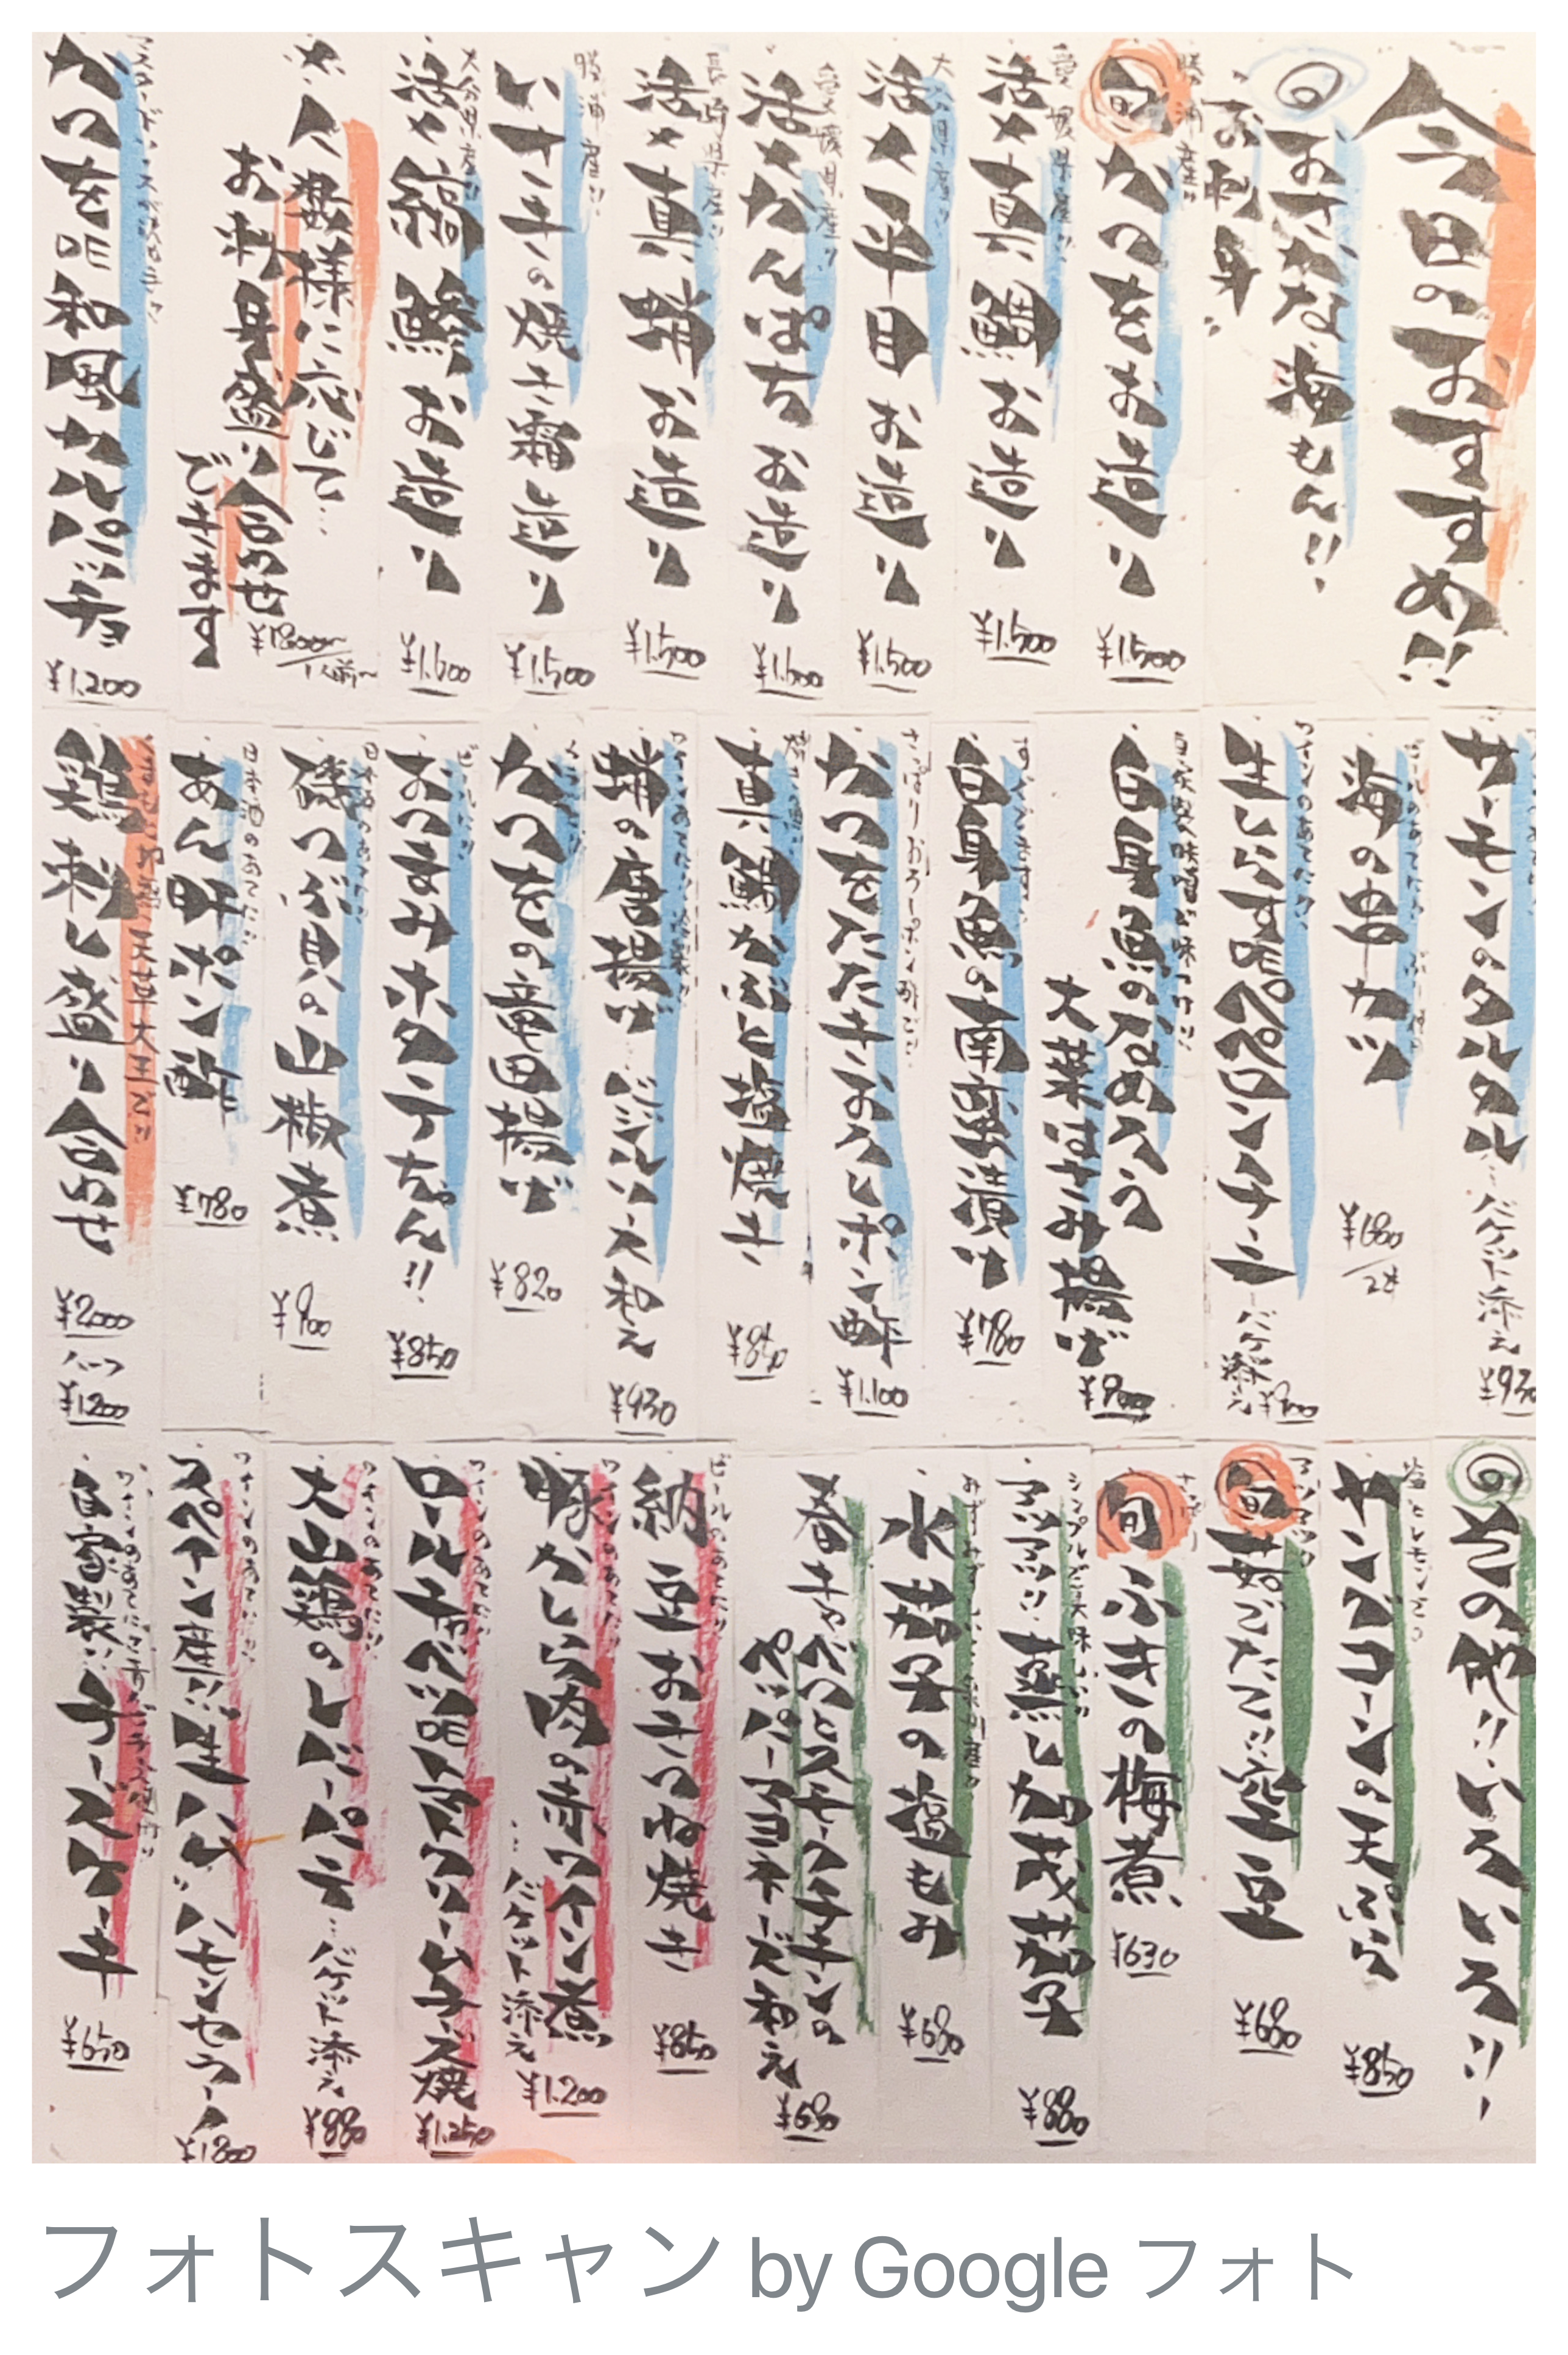 今日のおすすめ!!
おさかな海もん!!
お刺身
勝浦産!!
旬 かつをお造り
¥1.500
愛媛県産!!
活〆真鯛お造り
¥1.500
大分県産!!
活〆平目お造り
¥1.500
愛媛県産!!
活〆かんぱちお造り
¥1.600
長崎県産!!
活〆真蛸お造り
¥1.500
勝浦産!!
いサキの焼き霜造り
¥1.500
大分県産!!
活〆縞鯵お造り
¥1.600
人数様に応じて…
お刺身盛り合わせ
できます
¥1800〜/1人前〜
かつを 和風カルパッチョ
¥1.200
サーモンのタルタル…バケット添え
¥930
海の串カツ
¥680/2本
ワインのあてに!!
生しらすのペペロンチーニ…バケ添え
自家製味噌が味つけ!!
白身魚のなめろう
大葉はさみ揚げ
¥900
白身魚の南蛮漬け
¥780
さっぱりおろしポン酢で!!
かつをたたきおろしポン酢
¥1.100
真鯛かぶと塩焼き
¥850
蛸の唐揚げ…バジル大和え
¥930
かつをの竜田揚げ
¥820
おつまみホタテちゃん!!
¥850
日本酒のあてに!!
磯つぶ貝の山椒煮
¥900
日本酒のあてに!!
あん肝ポン酢
¥780
天草大王で!!
鶏刺し盛り合わせ
¥2000
ハーフ
¥1200
その他!!いろいろ!!
塩とレモンで。
ヤングコーンの天ぷら
¥850
アツアツ
旬 茹でたて!!空豆
¥680
旬 ふきの梅煮
¥630
シンプルで美味しい
アツアツ!!蒸し加茂茄子
¥880
水茄子の塩もみ
¥680
春キャベツとスモークチキンの
ペッパーマヨネーズ和え
¥680
ビールのあてに!!
納豆おきつね焼き
¥850
ワインのあてに!!
豚かしら肉の赤ワイン煮
…バケット添え
¥1.200
ワインのあてに!!
ロールキャベツ トマトクリームチーズ焼
¥1.250
ワインのあてに!!
大山鶏のレバーパテ…バケット添え
¥880
ワインのあてに!!
スペイン産!!生ハム ハモンセラーノ
¥1800
自家製!!チーズケーキ
¥650
フォトスキャン by Google フォト